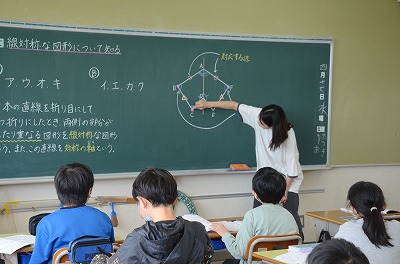 線対称な図形について知る
Ⓑ
ア、ウ、オ、キ
イ、エ、カ、ク
本の直線を折り目にして、
つ折りにしたとき、両側の部分が
たり重なる図形を線対称な図形
いう。また、この直線を対称の軸という。
対応する
四月
日